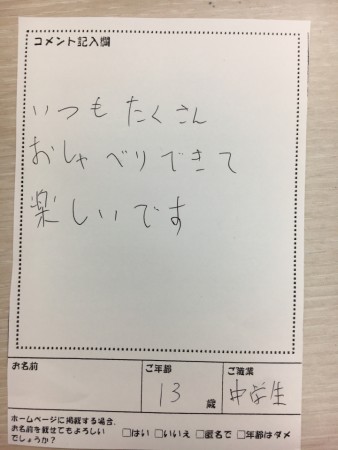 コメント記入欄
いつもたくさん
おしゃべりできて
楽しいです
お名前
ご年齢
13 歳
ご職業
中学生
ホームページに掲載する場合、
お名前を載せてもよろしい
でしょうか?
□はい □いいえ □匿名で □年齢はダメ